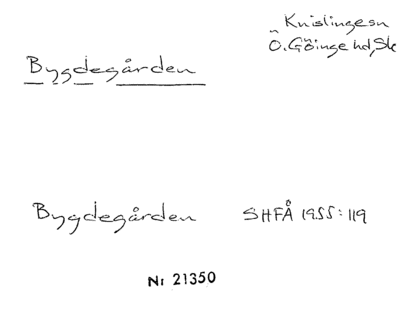 Knislinge sn
Ö. Göinge hd, Sk
Bygdegården
Bygdegården SHFÅ 1955:119
Nr 21350